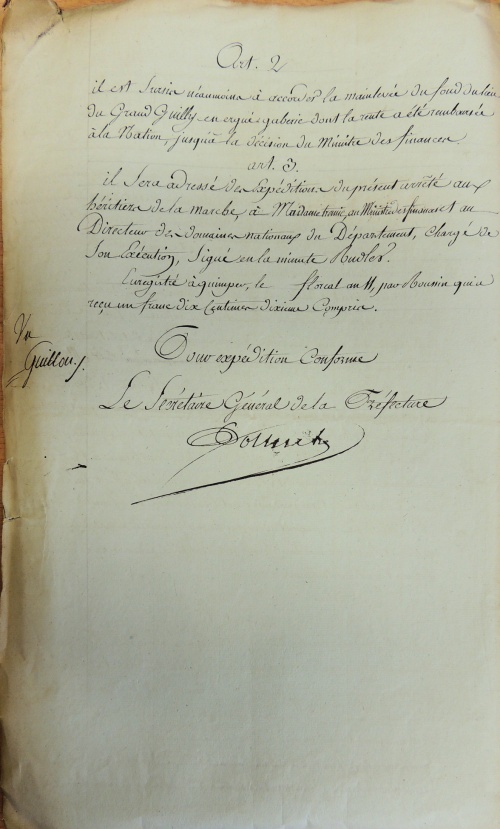 Art. 2
il est Sursis néanmoins à accorder la mainlevée du fond du lieu
du Grand Guilly en ergué-gaberic dont la rente a été remboursée
à la Nation, jusqu'à la décision du Ministre des finances.
art. 3.
il Sera adressé des Expéditions du présent arrêté aux
héritiers de la marche, à Madame au Ministre des finances et au
Directeur des domaines nationaux du Département, chargé de
Son Exécution, Signé en la minute Rudler.
Enregistré à quimper, le floréal an 11, par Roussin qui a
reçu un franc dix Centimes dixieme Compris.
Vu
Guillou
Pour expédition Conforme
Le Secrétaire Général de la Préfecture